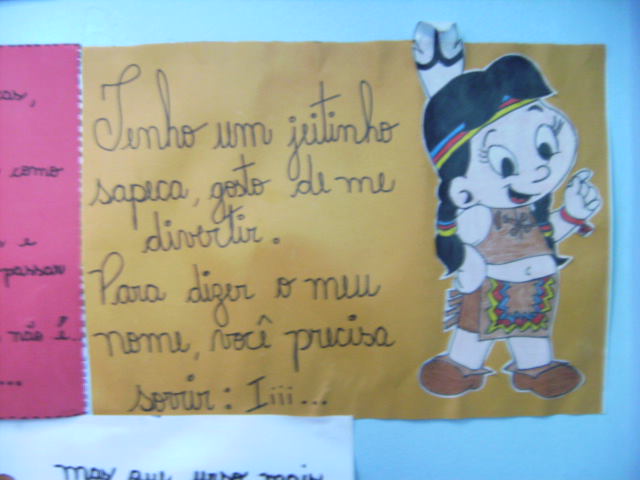 como
e
passar
não é...
Tenho um jeitinho
sapeca, gosto de me
divertir.
Para dizer o meu
nome, você precisa
sorrir: Iiii...
mas que urso mais